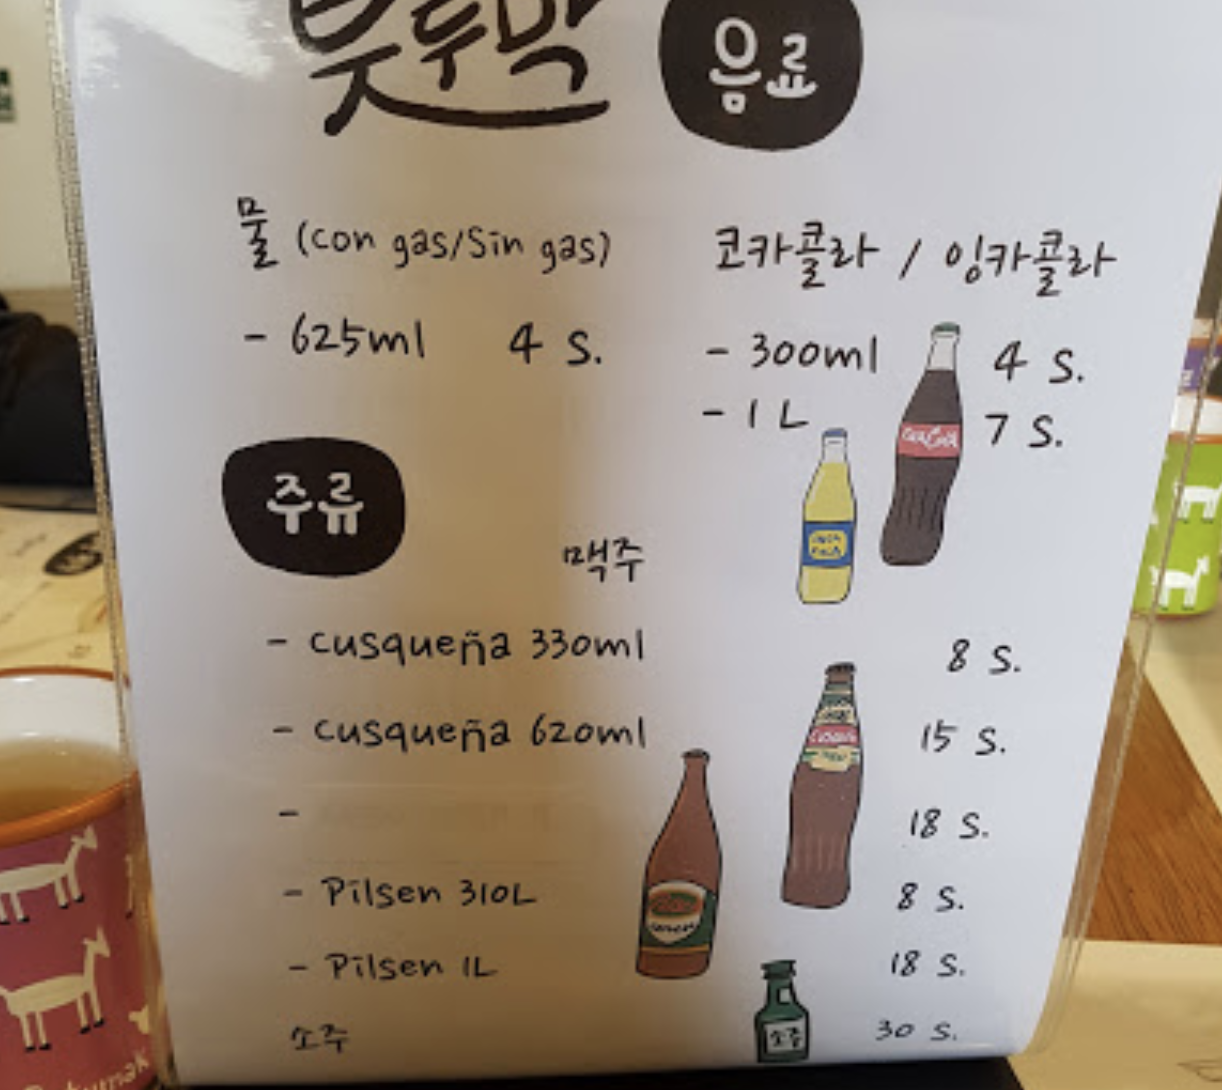 붓두막 음료
물 (con gas/sin gas)
- 625ml 4 S.
코카콜라 / 잉카콜라
- 300ml 4 S.
- 1 L 7 S.
주류
맥주
- cusqueña 330ml 8 S.
- cusqueña 620ml 15 S.
- 18 S.
- Pilsen 310L 8 S.
- Pilsen 1L 18 S.
소주 소주 30 S.